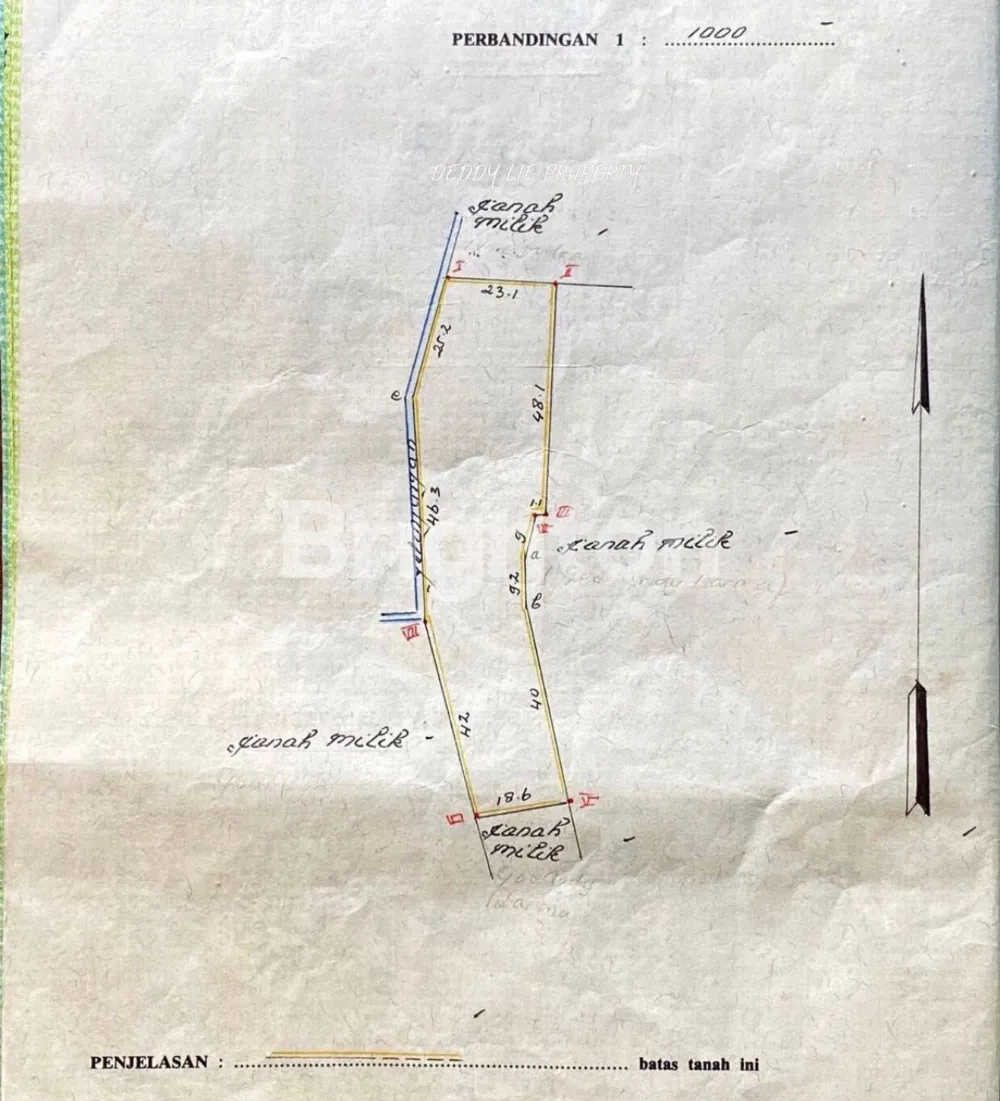 PERBANDINGAN 1 : 1000
DEDDY LIE PROPERTY
Tanah
milik
I
II
23.1
25.2
e
48.1
46.3
III
9
a
Tanah milik
9.2
b
VIII
40
42
Tanah milik
18.6
VI
Tanah
milik
Brighton
PENJELASAN : batas tanah ini